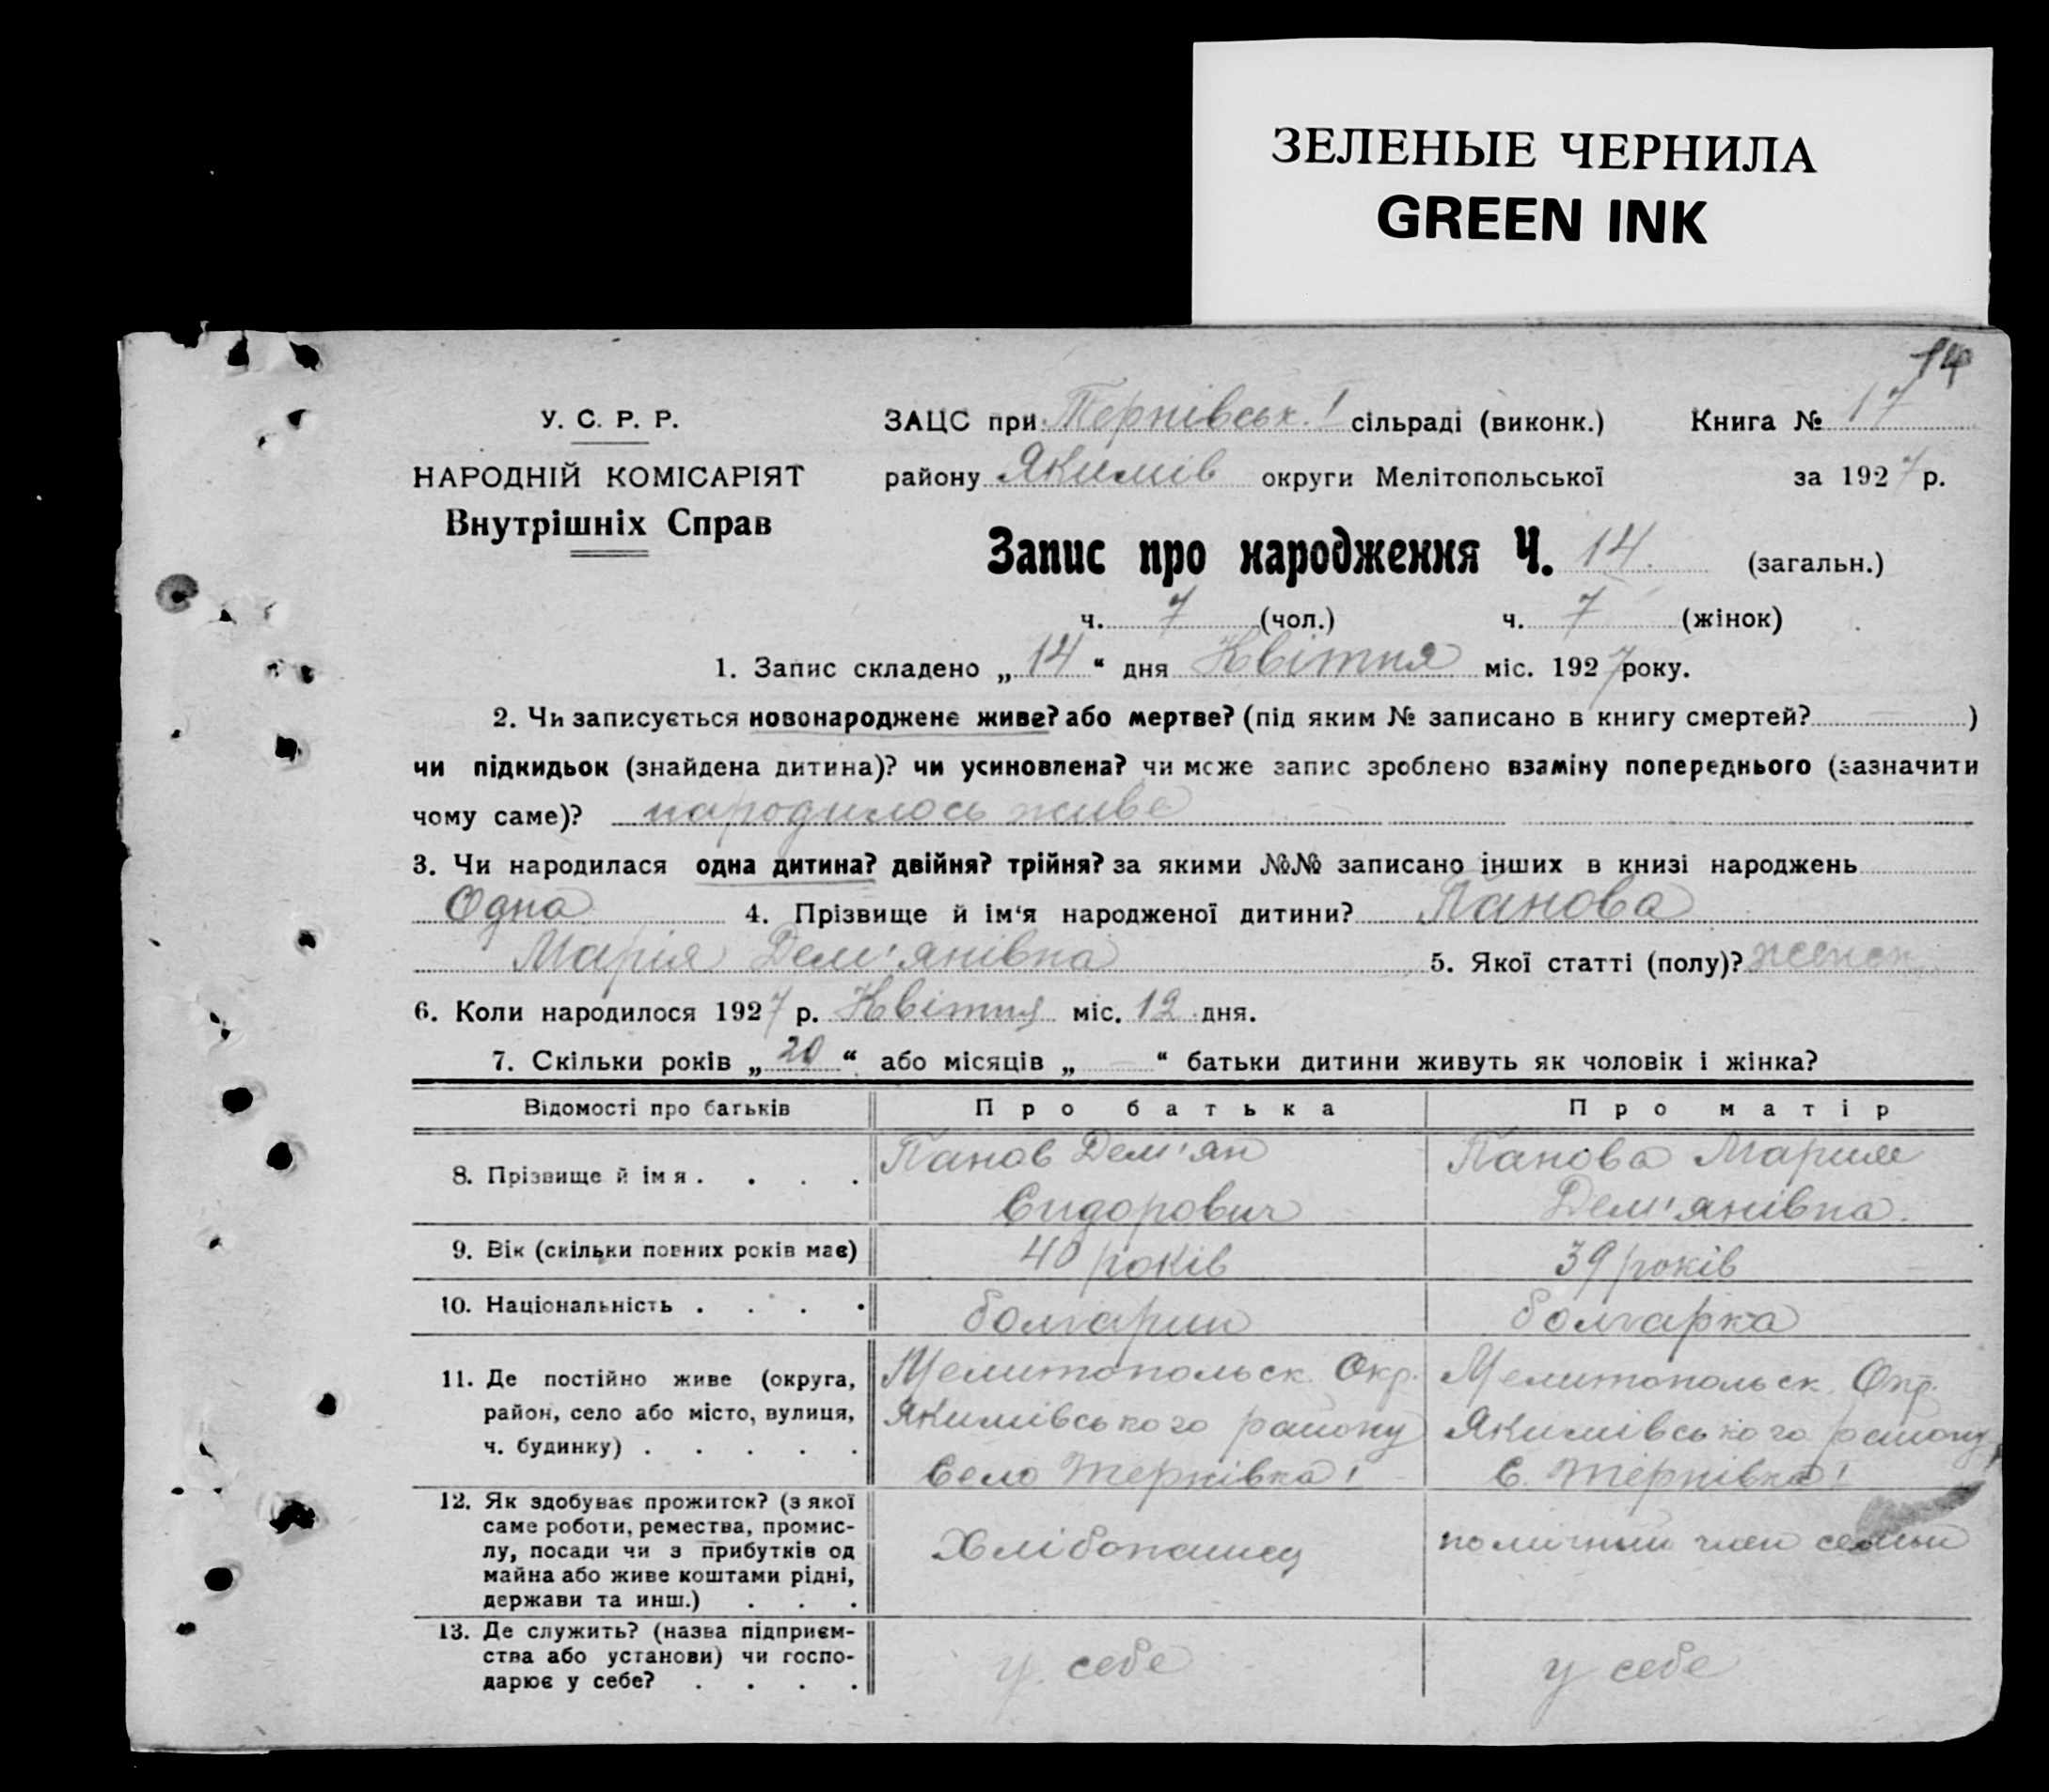 ЗЕЛЕНЫЕ ЧЕРНИЛА
GREEN INK
14
У. С. Р. Р.
НАРОДНІЙ КОМІСАРІЯТ
Внутрішніх Справ
ЗАЦС при Терпівськ. I сільраді (виконк.) Книга № 17
району Якимів округи Мелітопольської за 1927 р.
Запис про народження Ч. 14. (загальн.)
ч. 7 (чол.) ч. 7 (жінок)
1. Запис складено „ 14 “ дня Квітня міс. 1927 року.
2. Чи записується новонароджене живе? або мертве? (під яким № записано в книгу смертей? )
чи підкидьок (знайдена дитина)? чи усиновлена? чи може запис зроблено взаміну попереднього (зазначити
чому саме)? народилось живе
3. Чи народилася одна дитина? двійня? трійня? за якими №№ записано інших в книзі народжень
Одна 4. Прізвище й ім‘я народженої дитини? Панова
Марія Дем'янівна 5. Якої статті (полу)? женск
6. Коли народилося 1927 р. Квітня міс. 12 дня.
7. Скільки років „ 20 “ або місяців „ — “ батьки дитини живуть як чоловік і жінка?
Відомості про батьків Про батька Про матір
8. Прізвище й імя . . . . Панов Дем'ян Сидорович Панова Мария Дем'янівна.
9. Вік (скільки повних років має) 40 років 39 років
10. Національність . . . . болгарин болгарка
11. Де постійно живе (округа,
район, село або місто, вулиця,
ч. будинку) . . . . .
Мелитопольск. Окр.
Якимівського району
Село Терпівка I
Мелитопольск. Окр.
Якимівського району
С. Терпівка I
12. Як здобуває прожиток? (з якої
саме роботи, ремества, промис-
лу, посади чи з прибутків од
майна або живе коштами рідні,
держави та инш.) . . .
Хлібопашец
помічний член семьи
13. Де служить? (назва підприєм-
ства або установи) чи госпо-
дарює у себе? . . . .
у себе
у себе